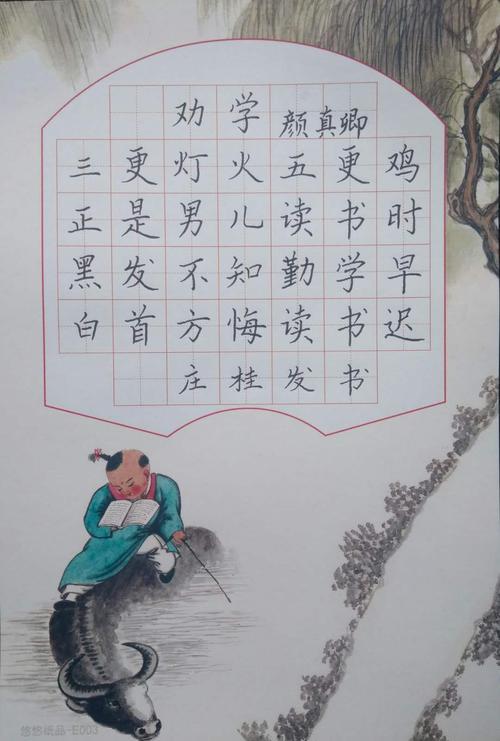 劝学
颜真卿
三更灯火五更鸡
正是男儿读书时
黑发不知勤学早
白首方悔读书迟
庄桂发书
悠悠纸品-E003